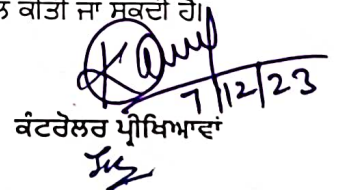 ਕੀਤੀ ਜਾ ਸਕਦੀ ਹੈ।
7/12/23
ਕੰਟਰੋਲਰ ਪ੍ਰੀਖਿਆਵਾਂ